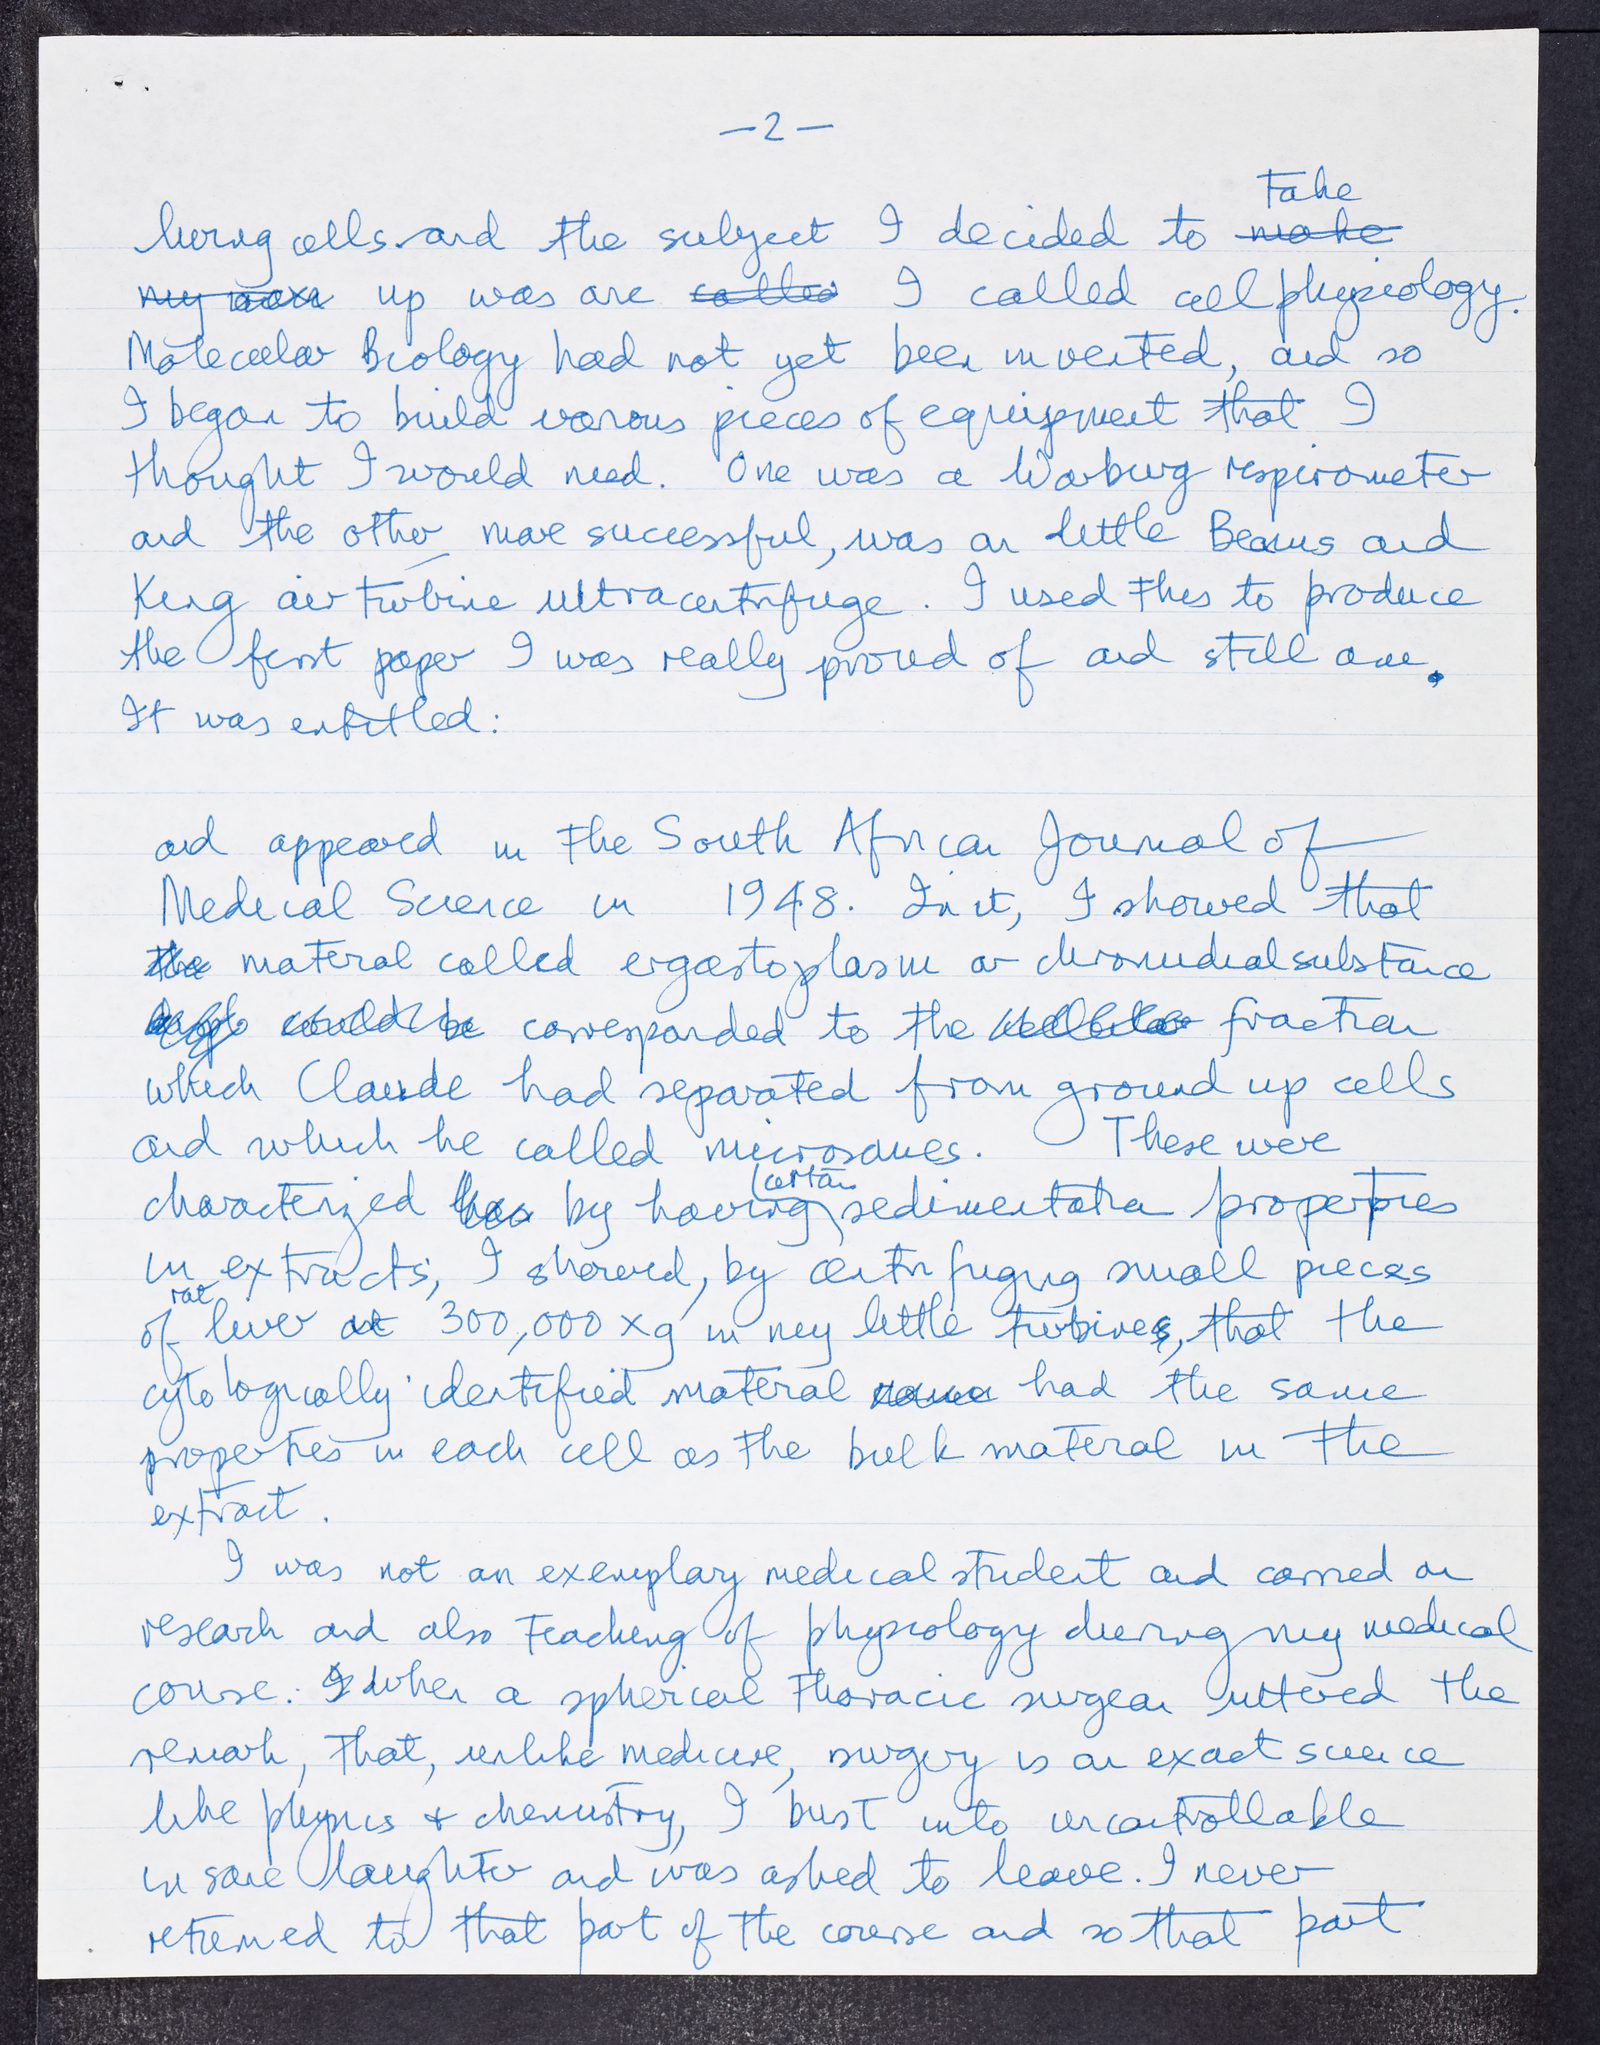 —2—
take
living cells and the subject I decided to make
my own up was one called I called cell physiology.
Molecular Biology had not yet been invented, and so
I began to build various pieces of equipment that I
thought I would need. One was a Warburg respirometer
and the other, more successful, was an little Beams and
King air turbine ultracentrifuge. I used this to produce
the first paper I was really proud of and still am.
It was entitled:
and appeared in the South African Journal of
Medical Science in 1948. In it, I showed that
the material called ergastoplasm or chromidial substance
could be corresponded to the fraction
which Claude had separated from ground up cells
and which he called microsomes. These were
certain
characterized by having sedimentation properties
in extracts; I showed, by centrifuging small pieces
rat
of liver at 300,000 x g in my little turbines, that the
cytologically identified material had the same
properties in each cell as the bulk material in the
extract.
I was not an exemplary medical student and carried on
research and also teaching of physiology during my medical
course. I When a spherical thoracic surgeon uttered the
remark, that, unlike medicine, surgery is an exact science
like physics & chemistry, I bust into uncontrollable
insane laughter and was asked to leave. I never
returned to that part of the course and so that part